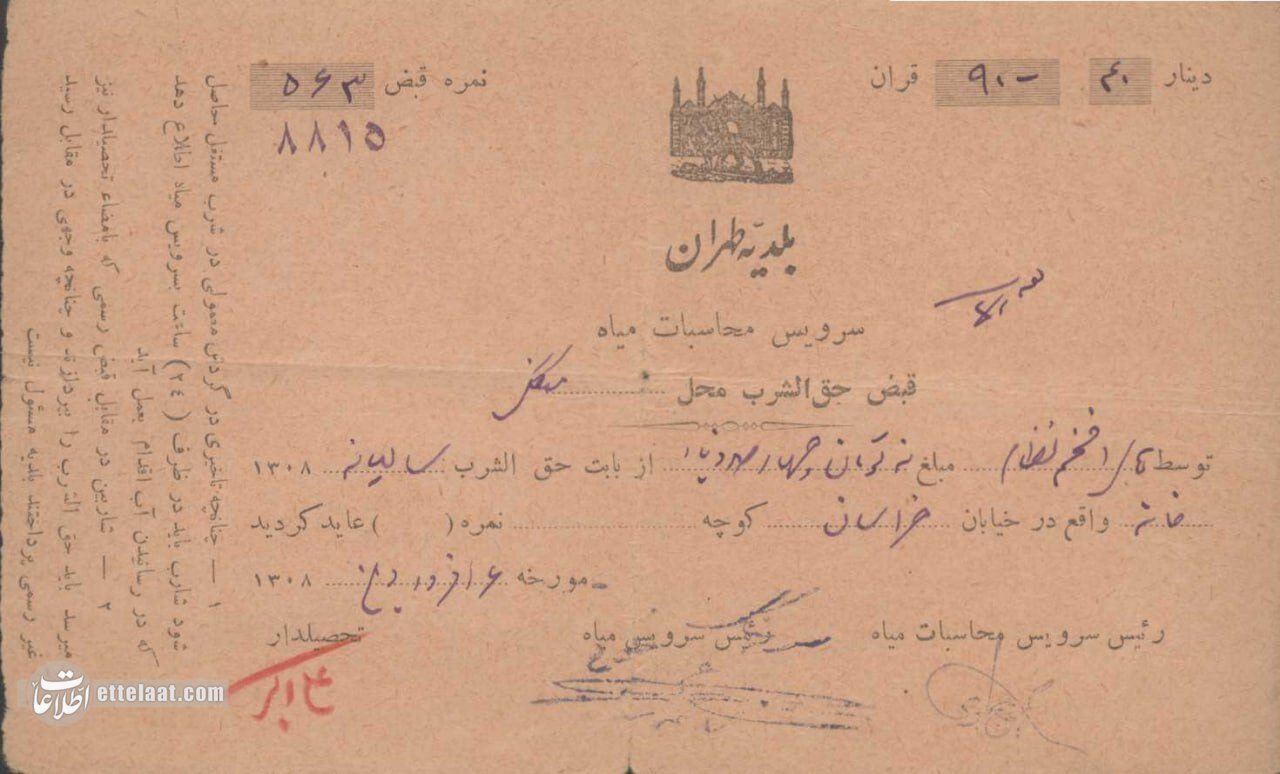 دینار ۴۰ قران ۹۰-
نمره قبض ۵۶۳
۸۸۱۵
بلدیّه طهران
سرویس محاسبات میاه
قبض حق الشرب محل
توسط افخم نظام مبلغ نه تومان و چهار از بابت حق الشرب سالیانه ۱۳۰۸
خانه واقع در خیابان خراسان کوچه نمره ( ) عاید گردید
مورخه ۶ فروردین ۱۳۰۸
رئیس سرویس محاسبات میاه
رئیس سرویس میاه
تحصیلدار
علی اکبر
۱ — چنانچه تاخیری در گردش معمولی در شرب مستقل حاصل
شود شارب باید در ظرف (۲٤) ساعت بسرویس میاه اطلاع دهد
که در رسانیدن آب اقدام بعمل آید
۲ — شاربین در مقابل قبض رسمی که بامضاء تحصیلدار نیز
میرسد باید حق الشرب را بپردازند و چنانچه وجهی در مقابل رسید
غیر رسمی پرداختند بلدیه مسئول نیست
اطلاعات ettelaat.com